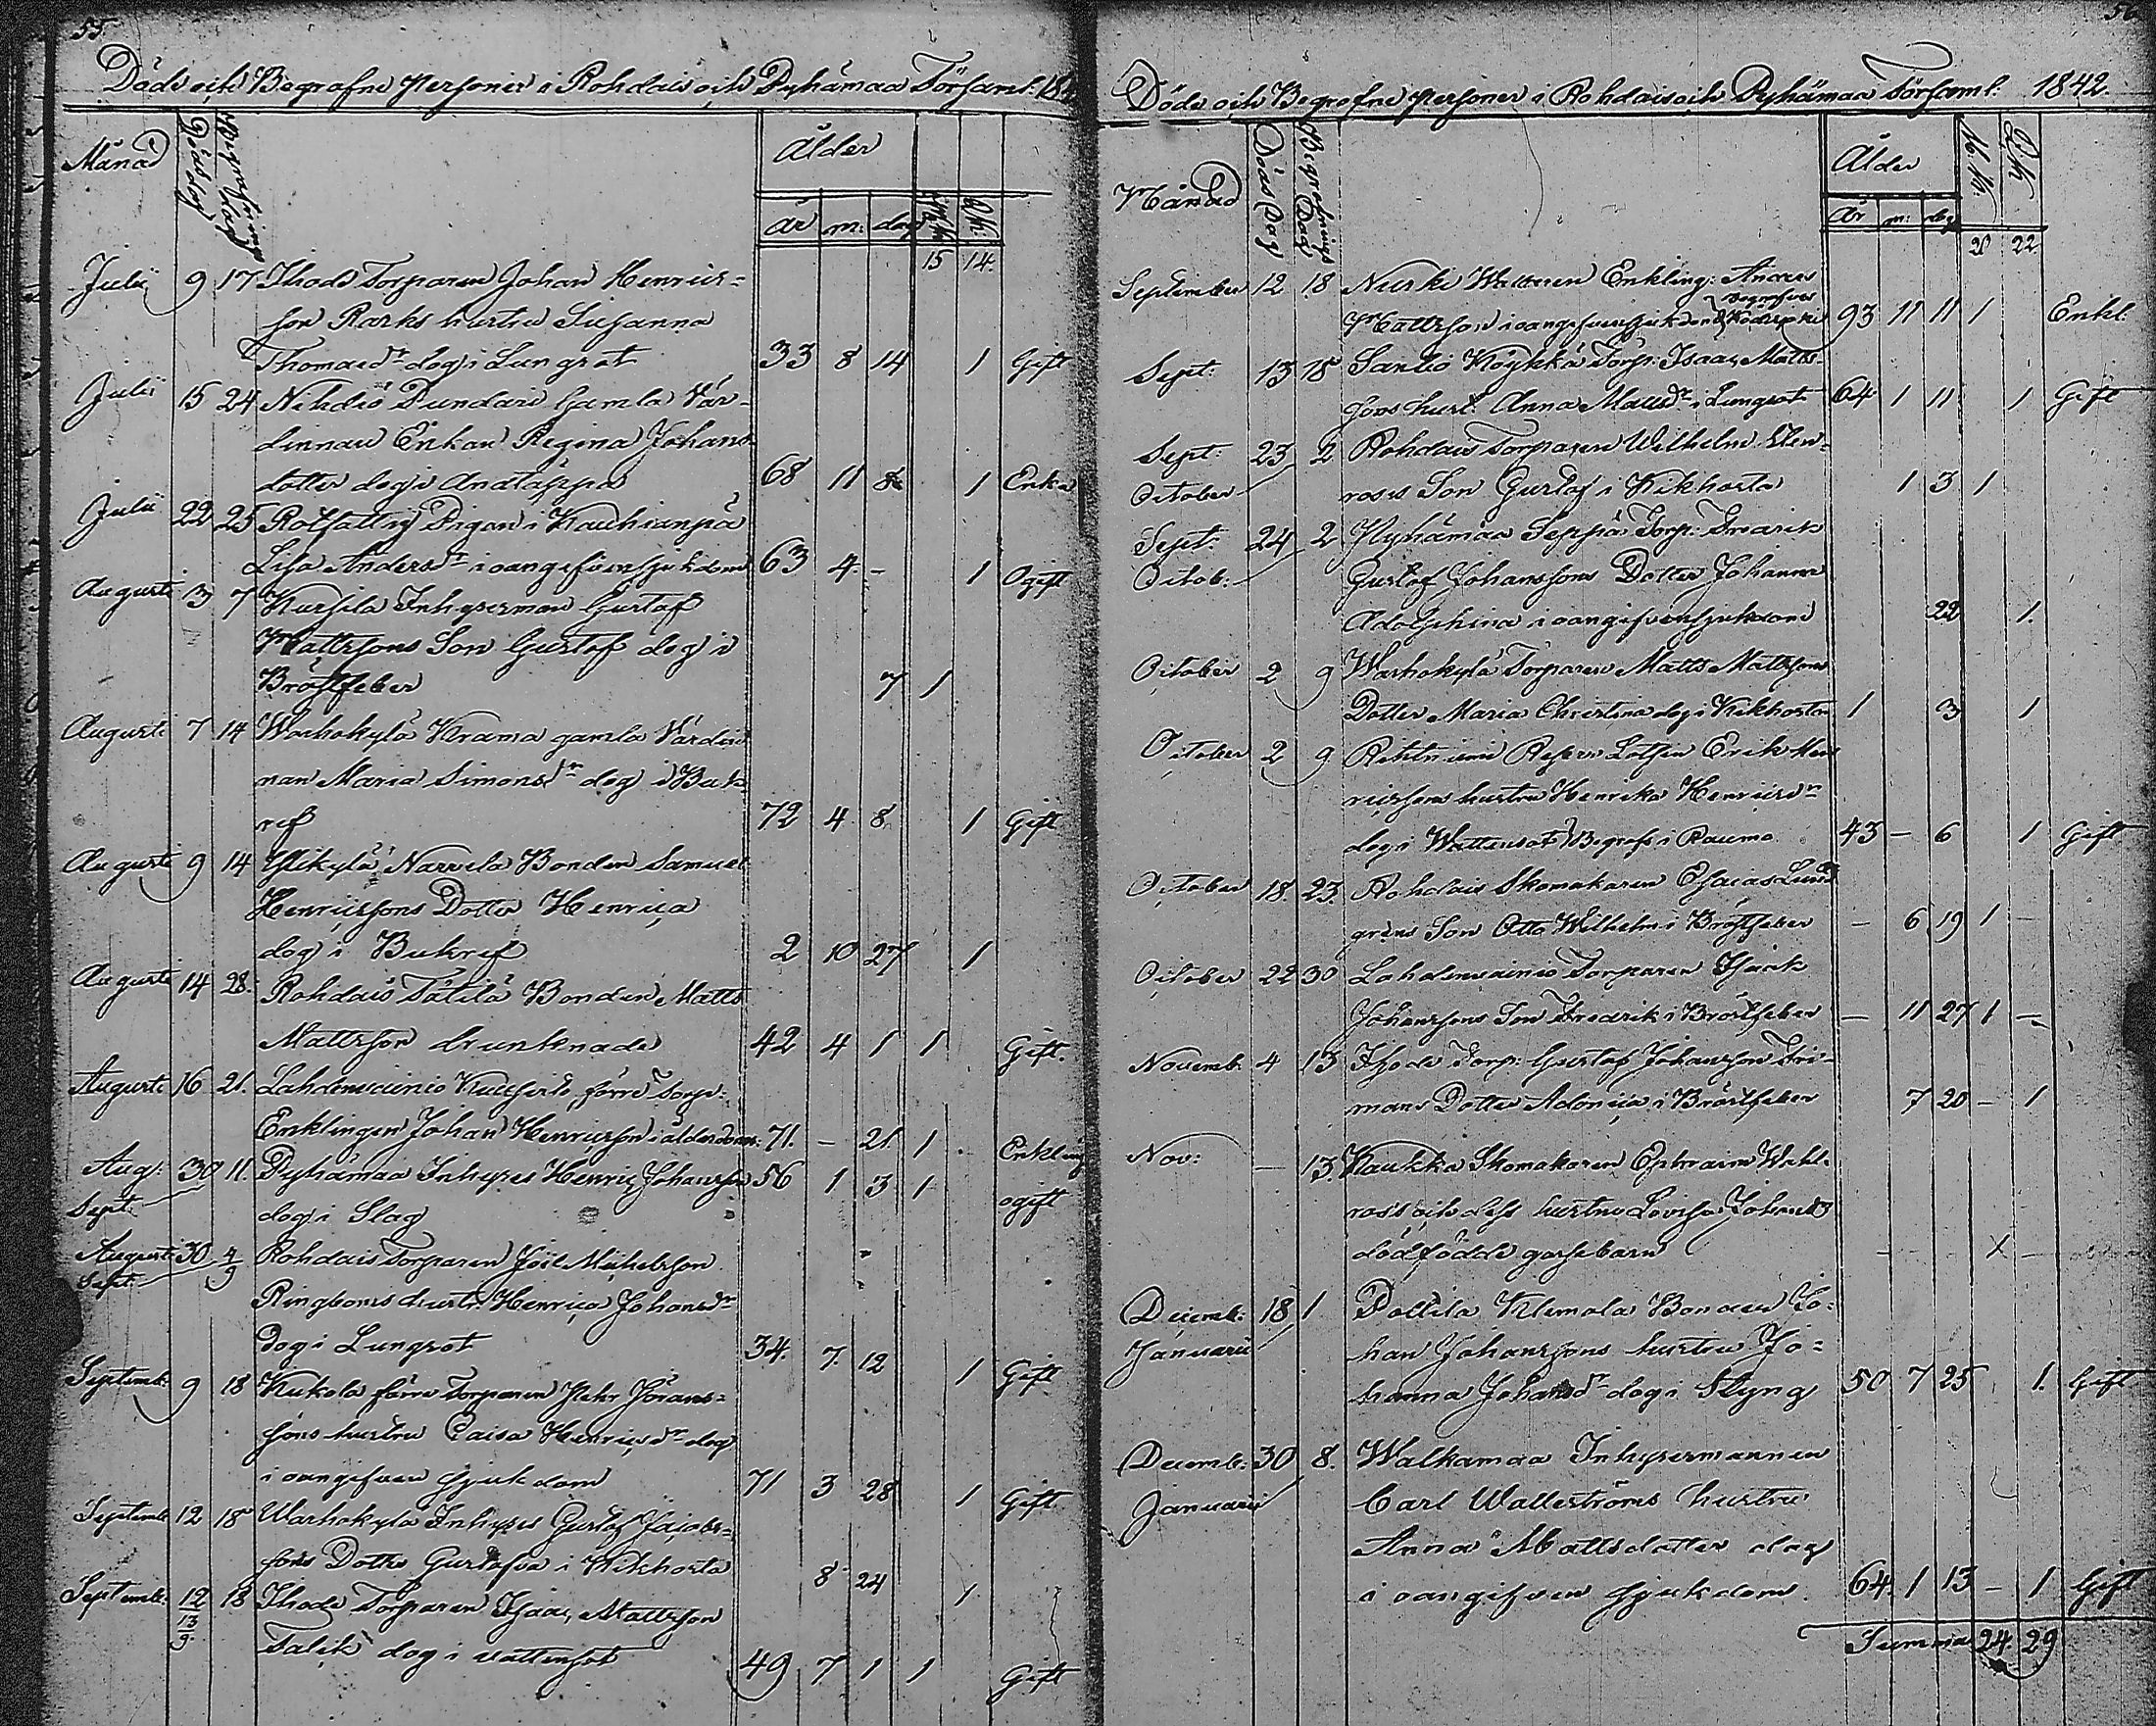 55.
Döde och Begrafne Personer i Rohdais och Pyhämaa Församl. 184
Månad
Döds dag
Begrafnings dag
Ålder
år m: dag M.k. Q.k.
15 14.
Julii 9 17 Ihode Torparen Johan Henrics=
son Rarks hustru Susanna
Thomaedr dog i Lungsot 33 8 14 1 Gift
Julii 15 24 Nihdiö Pundari Gamla Vär-
dinnan Enkan Regina Johans
dotter dog i Andtäppa 68 11 8 1 Enka
Julii 22 25 Rotfattig Pigan i Kauhianpä
Lisa Andersdr i oangifven sjukdom 63 4 - 1 Ogift
Augusti 3 7 Kursila Inhysesman Gustaf
Mattssons Son Gustaf dog i
Bröstfeber 7 1
Augusti 7 14 Warhokylä Krama gamla Värdin
nan Maria Simonsdr dog i Buk
ref 72 4 8 1 Gift
Augusti 9 14 Ylikylä Narvila Bonden Samuel
Henricssons Dotter Henrica
dog i Bukref 2 10 27 1
Augusti 14 28. Rohdais Tätilä Bonden Matts
Mattsson drunknade 42 4 1 1 Gift.
Augusti 16 21. Lahdenvainio förre Torp:
Enklingen Johan Henricsson i ålderdom: 71. - 21 1 Enkling
Aug: 30 11. Pyhämaa Inhyses Henric Johansson 56 1 3 1
Sept. dog i Slag ogift
Augusti 30 4/9 Rohdais Torparen Joel Michelsson
Sept. Ringboms hustr. Henrica Johansdr
Dog i Lungsot 34. 7. 12 1 Gift
Septemb: 9 18 Kukola förre Torparen Pehr Jörans=
sons hustru Caisa Henricsdr dog
i oangifven sjukdom 71 3 28 1 Gift
Septemb 12 18 Warhokyla Inhyses Gustaf Jacobs=
sons Dotter Gustafva i Kikhosta 8 24 1
Septemb. 12 18 Ihode Torparen Isaac Mattsson
13/9 Talik dog i vattensot 49 7 1 1 Gift
56
Döde och Begrafne Personer i Rohdais och Pyhämaa Församl. 1842.
Månad
Döds Dag
Begrafnings Dag
Ålder
M.k. Q.k.
År m: dag
20 22
September 12 18 Nurki Enkling: Anders
begrafves
Mattsson i oangifven sjukdom 93 11 11 1 Enkl.
Sept: 13 18 Santio Köykkä Torp: Isaac Matts-
sons hust. Anna Mattsdr i Lungsot 64 1 11 1 Gift
Sept: 23 2 Rohdais Torparen Wilhelm Sten-
October roos Son Gustaf i Kikhosta 1 3 1
Sept: 24 2 Pyhämaa Seppä Torp: Fredrik
Octob: Gustaf Johanssons Dotter Johanna
Adolphina i oangifven sjukdom 22 1.
October 2 9 Warhokylä Torparen Matts Mattssons
Dotter Maria Christina dog i Kikhosta 1 3 1
October 2 9. Rihtniemi Reserv Lotsen Erik Hen
ricssons hustru Henrika Henricsdr
dog i Wattensot Begrafs i Raumo. 43 - 6 1 Gift
October 18. 23. Rohdais Skomakaren Esaias Lund
grens Son Otto Wilhelm i Bröstfeber - 6 19 1 -
October 22 30 Lahdenvainio Torparen Isack
Johanssons Son Fredrik i Bröstfeber - 11 27 1 -
Novemb. 4 13 Ihode Torp: Gustaf Johansson Fri-
mans Dotter Adonica i Bröstfeber 7 20 - 1
Nov: - 13. Kaukka Skomakaren Ephraim Wahl-
roos och dess hustru Lovisa Johansdr
dödfödde gossebarn - - - X -
Decemb: 18 1 Pollila Klemola Bonden Jo-
Januarii han Johanssons hustru Jo=
hanna Johansdr dog i Styng 50 7 25 1. Gift
Decemb: 30 8. Walkamaa Inhysesmannen
Januarii Carl Wallströms hustru
Anna Mattsdotter dog
i oangifven sjukdom. 64. 1 13 - 1 Gift
Summa 24. 29